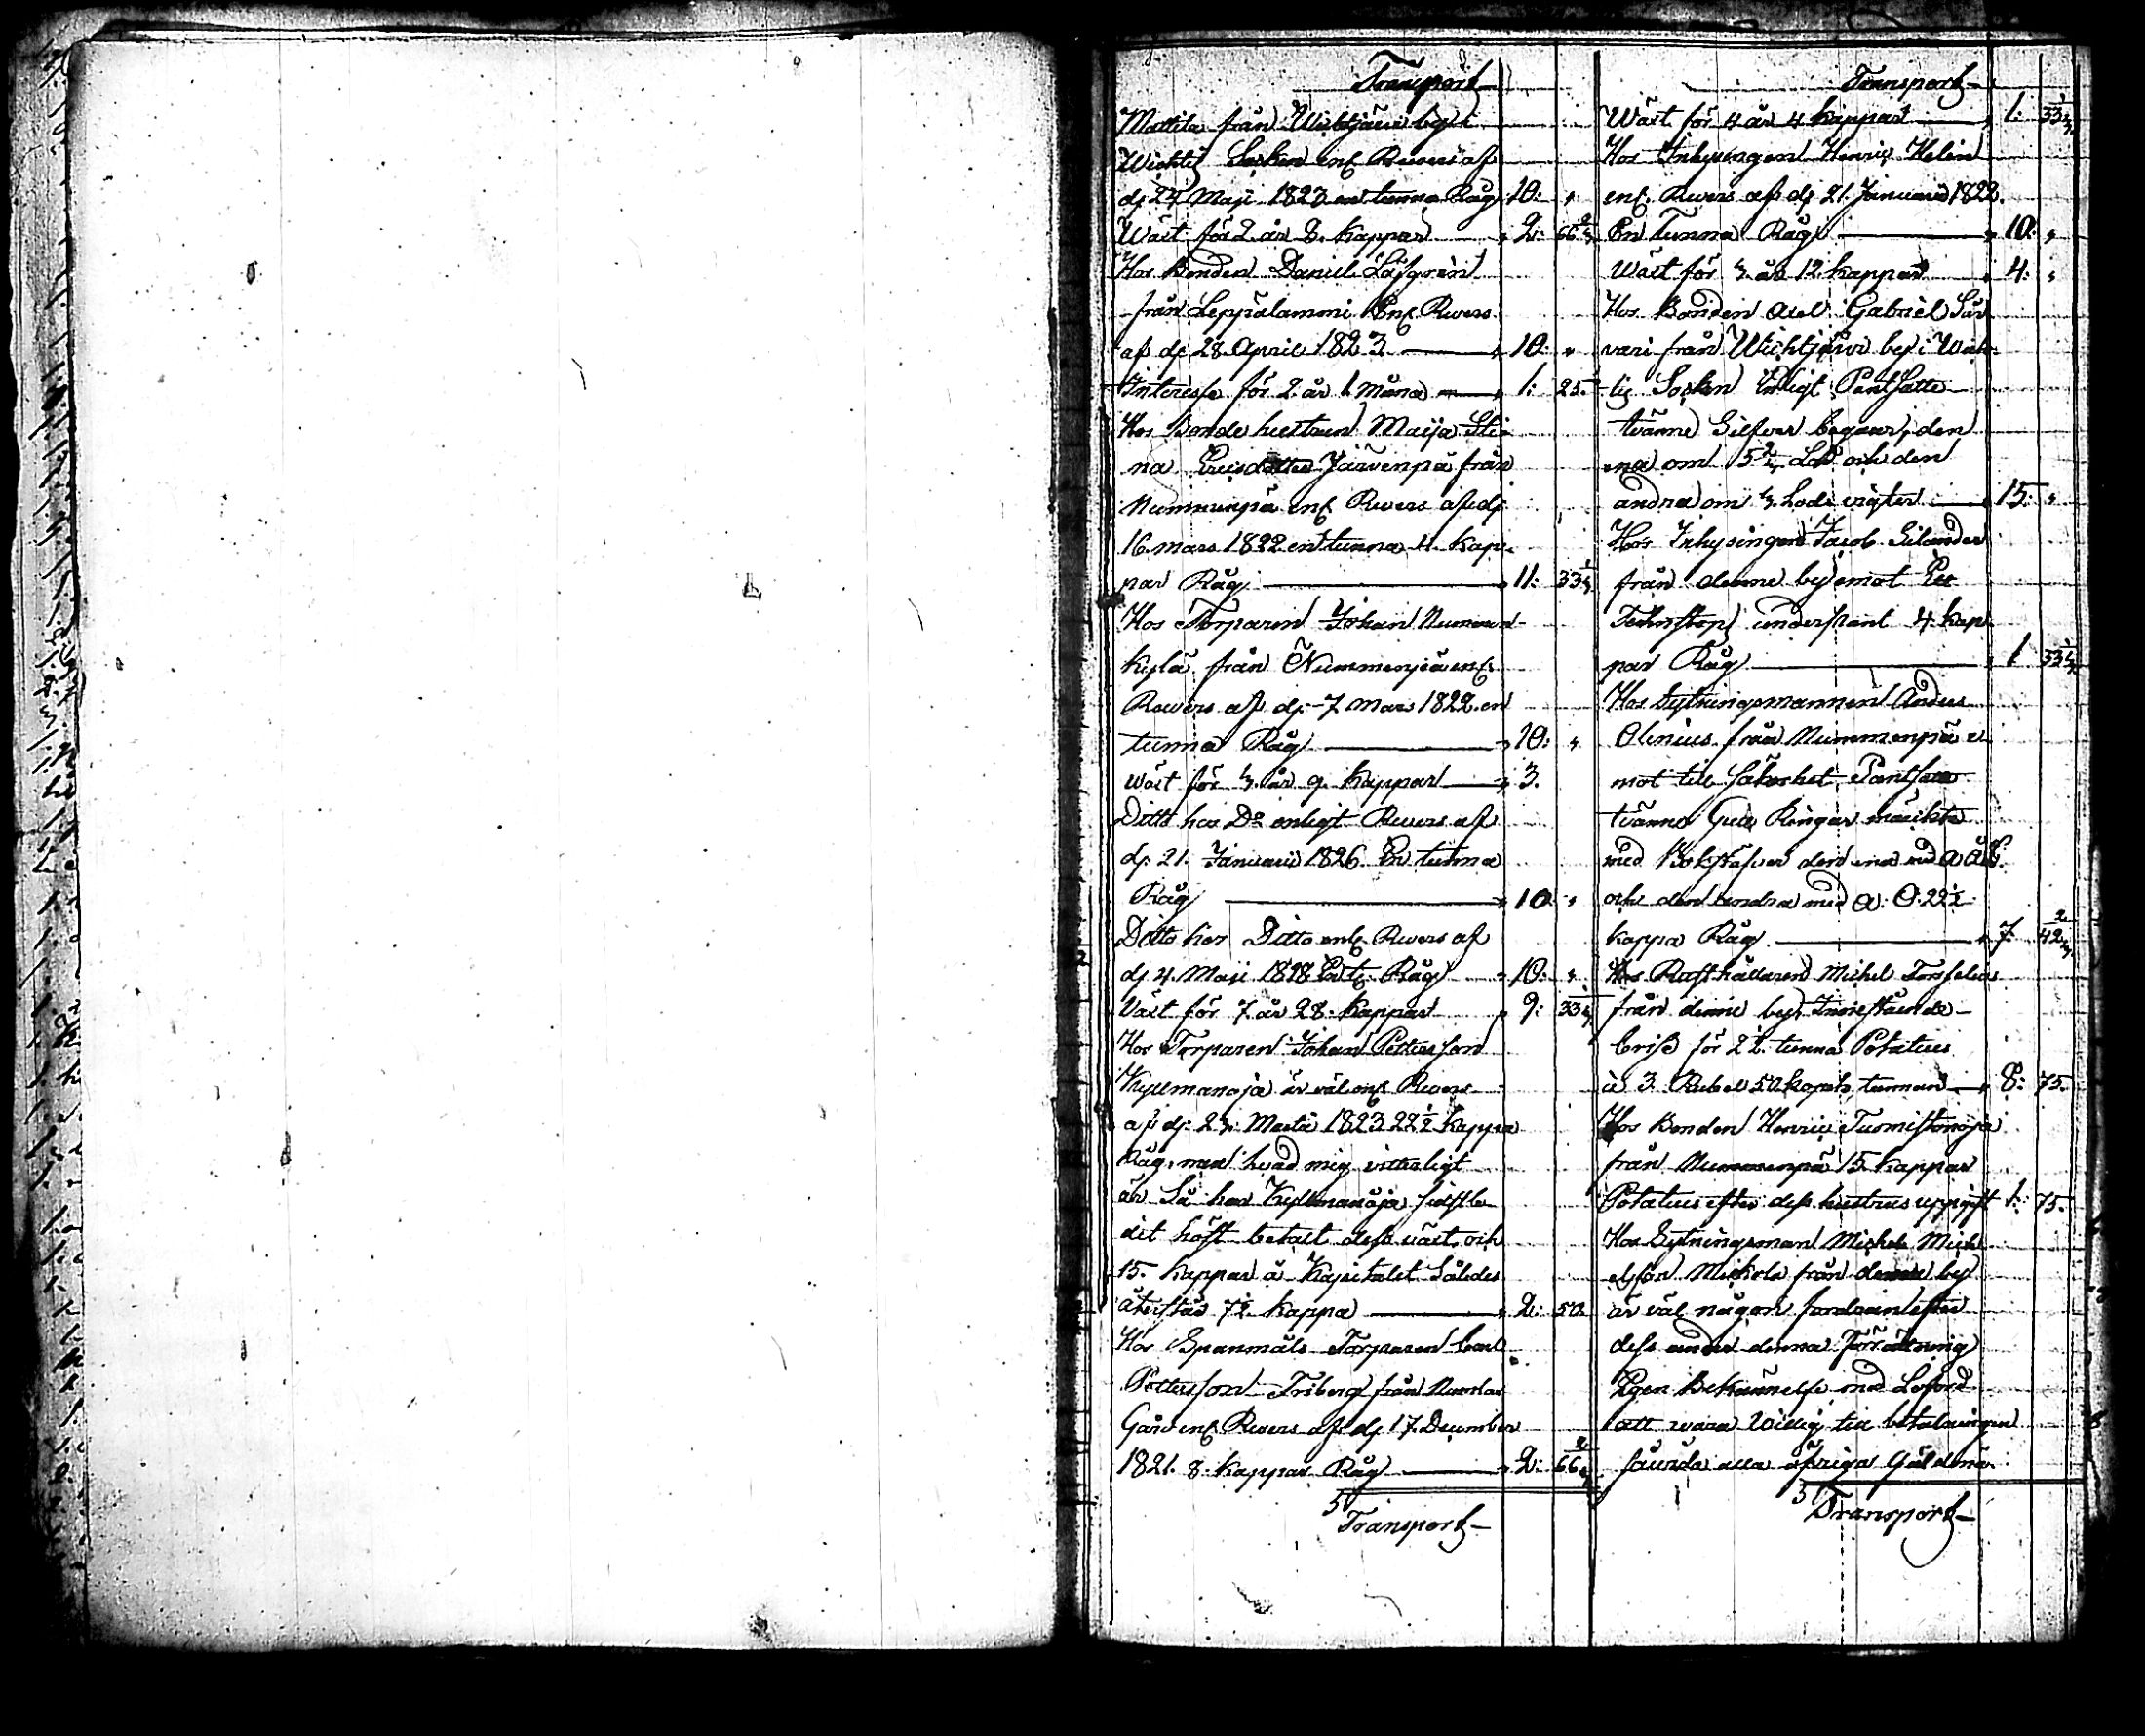 Transport
Mattila från Wichtjärvi by i
Wichtis Socken enl. Revers af
d. 24 Maji 1823 en tunna Råg 10: "
Wäxt för 2. år 8. Kappar " 2: 66 2/3
Hos Bonden Daniel Löfgren
från Leppälammi Enl. Revers
af d. 28. April 1823 " 10: "
Interesse för 2. år 1. Måna " 1: 25.
Hos Bonde hustrun Maija Sti-
na Ericsdotter Järvenpä från
Nummenpä enl. Revers af d.
16. mars 1822 en tunna 4. Kap-
par Råg " 11: 33 1/3
Hos Torparen Johan Nummen-
kylä från Nummenpä enl.
Revers af d. 7 Mars 1822. en
tunna Råg " 10: "
wäxt för 3. år 9. Kappar " 3.
Ditto hos Do enligt Revers af
d. 21. Januarii 1826. En tunna
Råg " 10. "
Ditto hos Ditto enl. Revers af
d. 4. Maji 1818 En t. Råg " 10: "
Växt för 7. år 28. Kappar " 9: 33 1/3
Hos Torparen Johan Pettersson
Kyllmänoja är väl enl. Revers
af d. 23. Martii 1823 22 1/2 Kappa
Råg, men hvad mig vitterligt
är Så har Kyllmänoja sidstle-
dit höst betalt dess växt, och
15. Kappar å Kapitalet Således
återstår 7 1/2 Kappa " 2: 50.
Hos Spanmåls Torparen Carl
Pettersson Friberg från
Gård enl. Revers af d. 17. December
1821. 8. Kappar Råg " 2: 66 2/3
Transport
Transport
Wäxt för 4 år 4 Kappar " 1: 33 1/3
Hos Inhysingen Henric Helin
enl. Revers af d. 21. Januarii 1822.
En Tunna Råg " 10: "
Wäxt för 3. år 12 kappar " 4: "
Hos Bonden Axel Gabriel
vari från Wichtjärvi by i Wich-
tis Socken Enligt Pantsatte
tvänne Silfver bägare, den
ena om 5 2/3 Lod och den
andra om 3. Lods vigter " 15: "
Hos Inhysingen Jacob Silander
från denne by emot Ett
understånd 4. kap-
par Råg " 1 33 1/3
Hos Sytningsmannen Anders
Olenius från Nummenpä e-
mot till säkerhet Pantsatte
tvänne Guld Ringar märkte
med Bokstäfver den ena med
och den andra med A: O. 22 1/2
kappa Råg " 7: 42
Hos Rusthållaren Michel
från denne by, Innestående
för 2 1/2. tunna Potatues
à 3. Rubel 50 kopek tunnan " 8: 75.
Hos Bonden Henric Tuomistonoja
från Nummenpä 15. Kappar
Potatues efter dess hustrus uppgift 1: 75.
Hos Sytningsman Michel Mich-
elsson Mickola från denna by
är väl någon fordran efter
dess under denna Förrättning
Egen Bekännelse med Löford
att vara Villig till betalningen
såvida alla öfriga Gäldenä-
Transport